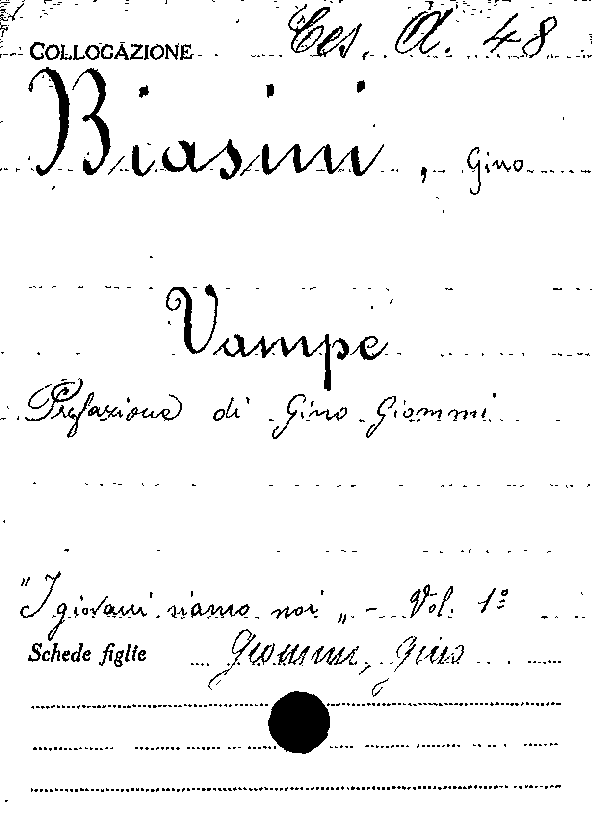 COLLOCAZIONE Ces. A. 48
Biasini, Gino
Vampe
Prefazione di Gino Giommi
"I giovani siamo noi„ - Vol. 1º
Schede figlie Giommi, Gino